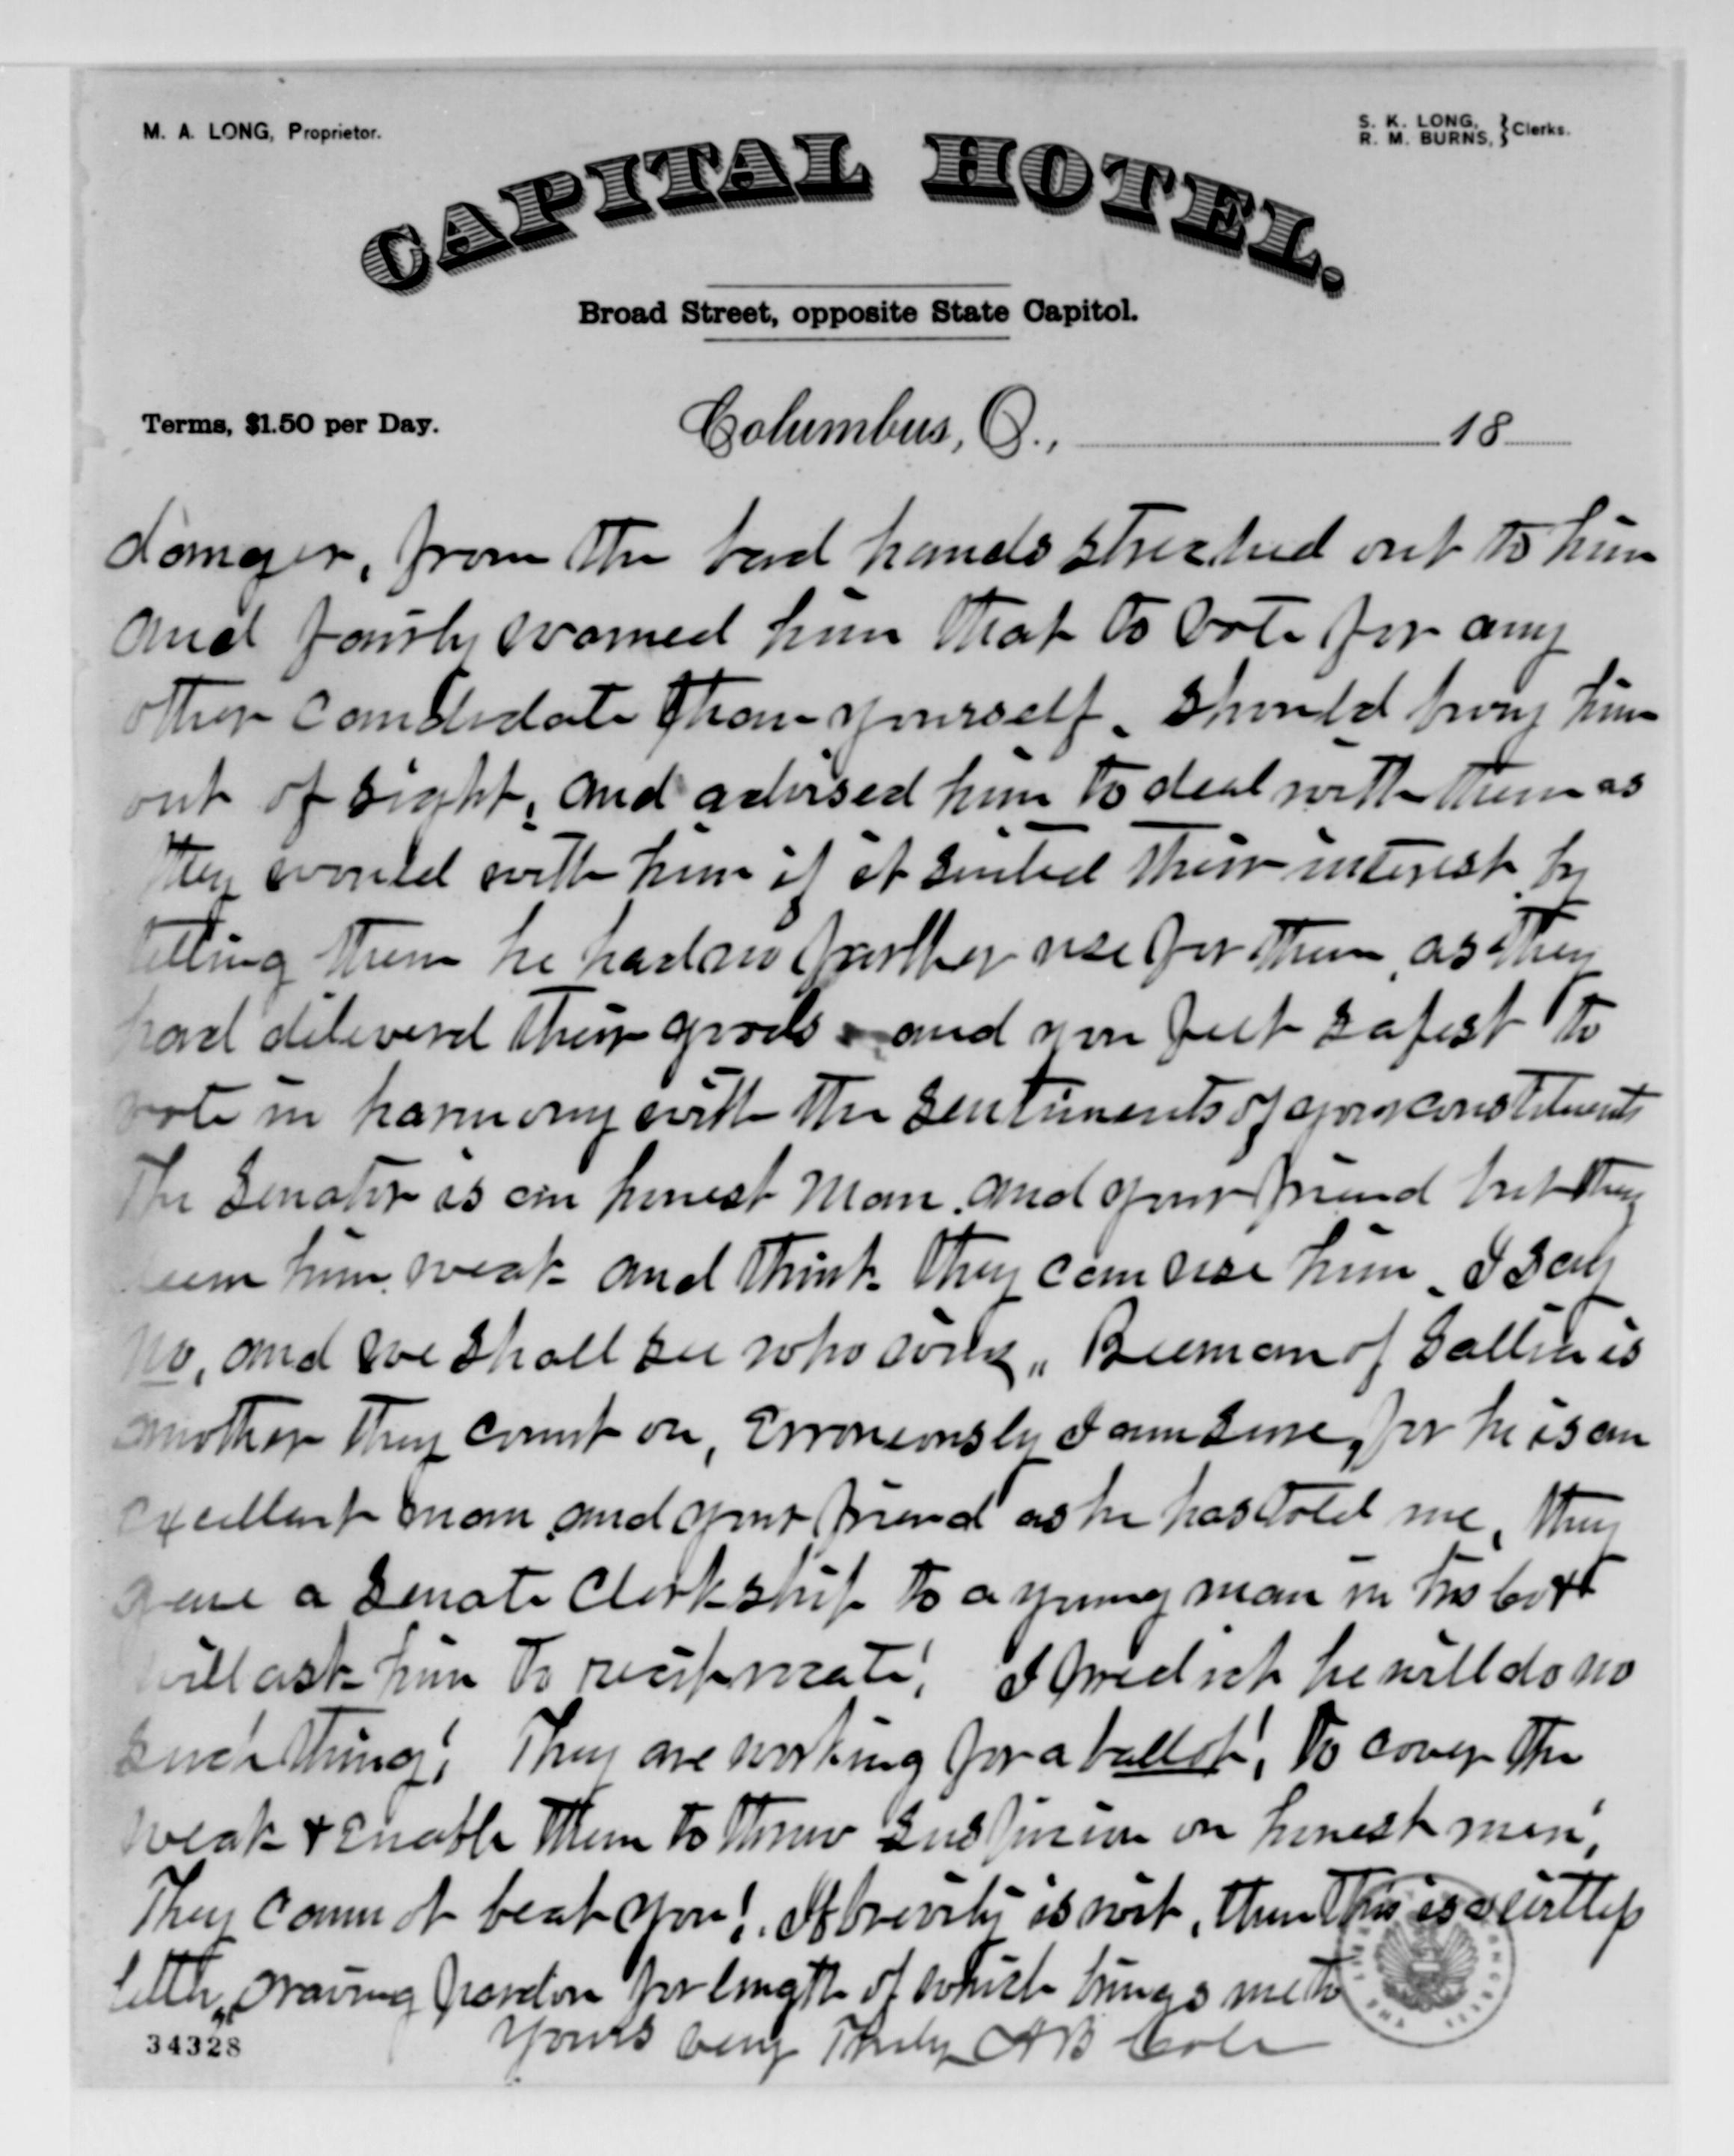 M. A. LONG, Proprietor.
S. K. LONG,
R. M. BURNS, } Clerks.
CAPITAL HOTEL.
Broad Street, opposite State Capitol.
Terms, $1.50 per Day.
Columbus, O., 18
danger, from the bad hands streched out to him
and fairly warned him that to vote for any
other candidate than yourself. should bury him
out of sight, and advised him to deal with them as
they would with him if it suited their interest by
telling them he had no further use for them, as they
had deliverd their goods and you felt safest to
vote in harmony with the sentiments of your constituents
The Senator is an honest man. and your friend but they
deem him weak and think they can use him. I say
no, and we shall see who wins,, Beeman of Gallia is
another they count on, Erroneously I am sure, for he is an
excellent man and your friend as he has told me, they
gave a Senate Clerkship to a young man in his Co &
will ask him to reciprocate! I predict he will do no
such thing! They are working for a ballot! to cover the
weak & enable them to throw suspicion on honest men!
They cannot beat you! If brevity is wit, then this is a witless
letter, craving pardon for length of which brings me to
Yours very Truly A B Cole
34328